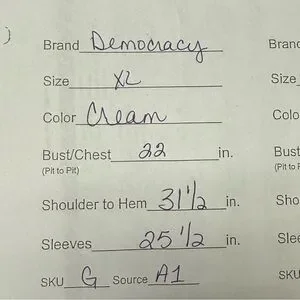 Brand Democracy Brand
Size XL Size
Color Cream Colo
Bust/Chest 22 in. Bust
(Pit to Pit) (Pit to P
Shoulder to Hem 31 1/2 in. Sho
Sleeves 25 1/2 in. Slee
SKU G Source A1 SKU